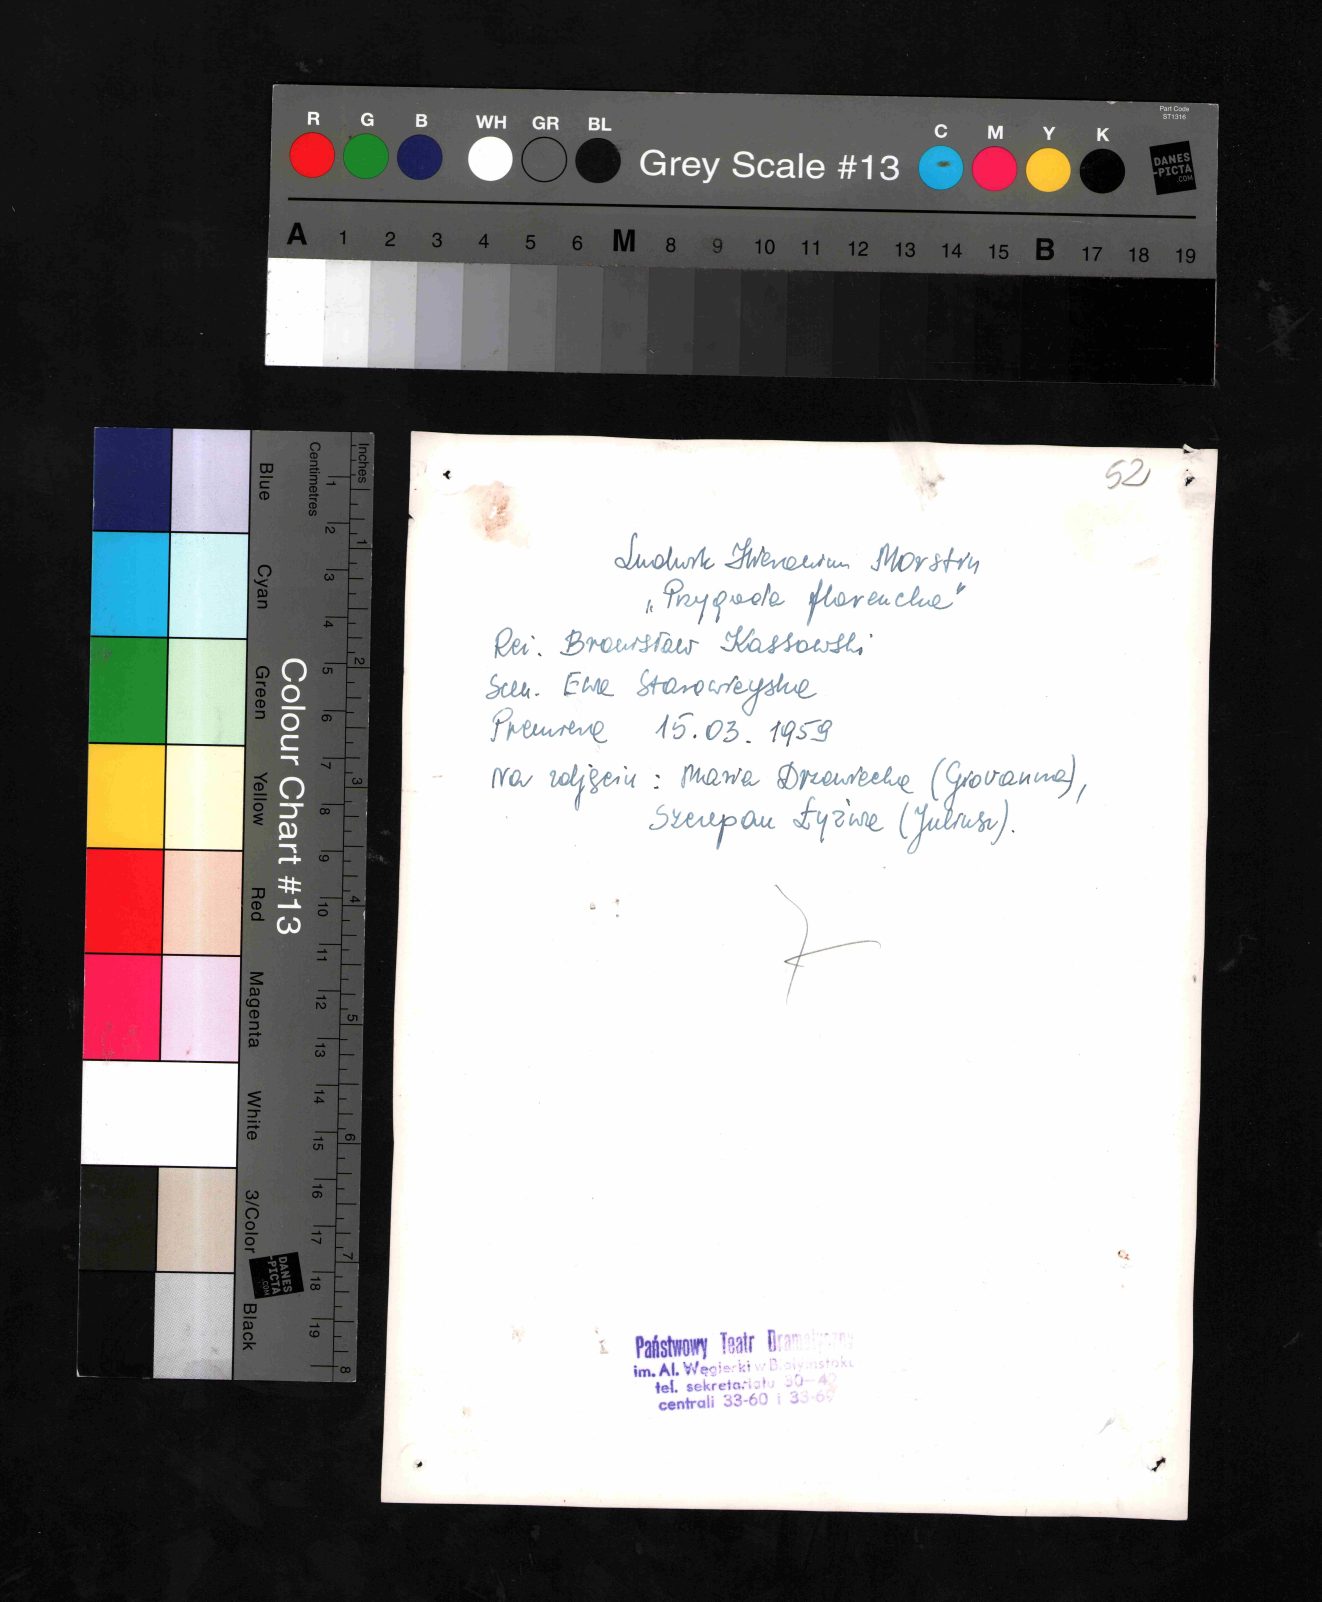 R G B WH GR BL Grey Scale #13 C M Y K
Part Code
ST1316
DANES
-PICTA
.COM
A 1 2 3 4 5 6 M 8 9 10 11 12 13 14 15 B 17 18 19
Inches
Centimetres
1 2 3 4 5 6 7 8 9 10 11 12 13 14 15 16 17 18 19
1 2 3 4 5 6 7 8
Colour Chart #13
Blue
Cyan
Green
Yellow
Red
Magenta
White
3/Color
Black
DANES
-PICTA
.COM
52
Ludwik Hieronim Morstin
„Przygoda florencka"
Reż. Bronisław Kassowski
Scen. Ewa Starowieyska
Premiera 15.03.1959
Na zdjęciu: Maria Drzewiecka (Giovanna),
Szczepan Łyżwa (Juliusz).
Państwowy Teatr Dramatyczny
im. Al. Węgierki w Białymstoku
tel. sekretariatu 30-42
centrali 33-60 i 33-69